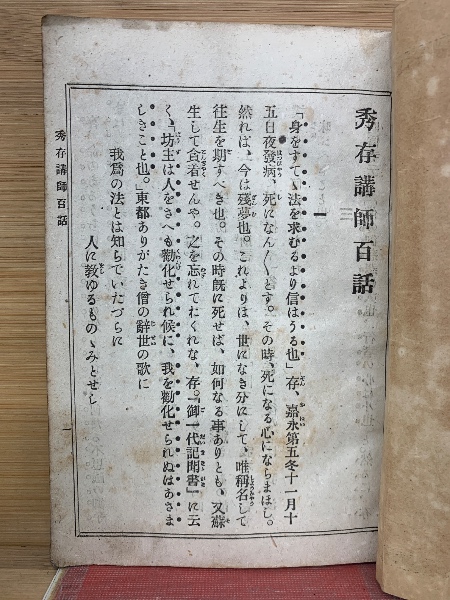 秀存講師百話
一
「身をすてゝ法を求むるより信はうる也」存、嘉永第五冬十一月十
五日夜發病、死になん〳〵とす。その時、死になる心にならまほし。
然れば、今は殘夢也。これよりは、世になき分にして、唯稱名して
往生を期すべき也。その時既に死せば、如何なる事ありとも、又蘇
生して貪着せんや。之を忘れておくれな、存。「御一代記聞書」に云
く、「坊主は人をさへも勸化せられ候に、我を勸化せられぬはあさま
しきこと也。」東都ありがたき僧の辭世の歌に
我爲の法とは知らでいたづらに
人に敎ゆるものゝみとせし
秀存講師百話
一